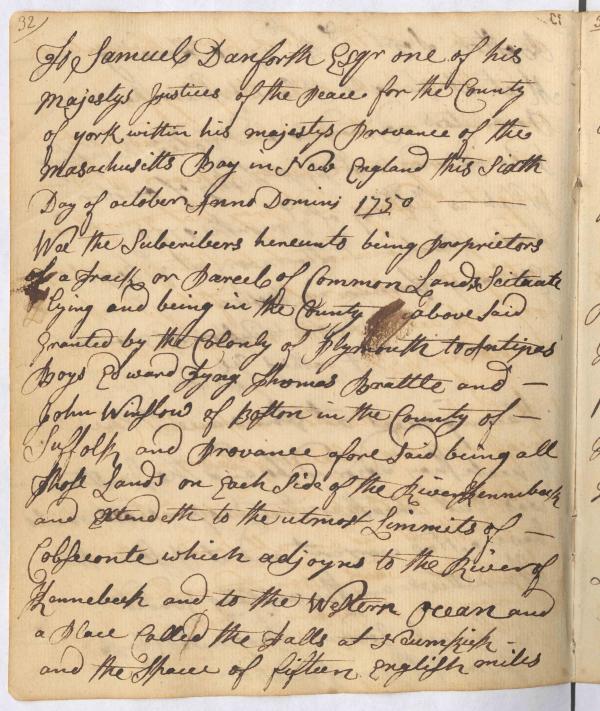 32
To Samuel Danforth Esqr one of his
Majestys Justices of the Peace for the County
of york within his majestys Provance of the
Masachusitts Bay in New England this Sixth
Day of october Anno Domini 1750
Wee the Subscribers hereunto being proprietors
of a Track or Parcel of Common Lands Scituate
lying and being in the County above Said
Granted by the Colonly of Plymouth to Antipas
Boys Edward Tyng Thomas Brattle and —
John Winslow of Boston in the County of —
Suffolk and Provance afore Said being all
those Lands on Each Side of the River Kennebeck
and Extendeth to the utmost Limmits of —
Cobseconte which adjoyns to the River of
Kennebeck and to the Western ocean and
a Place Called the Falls at Neumkick -
and the Space of fifteen English miles